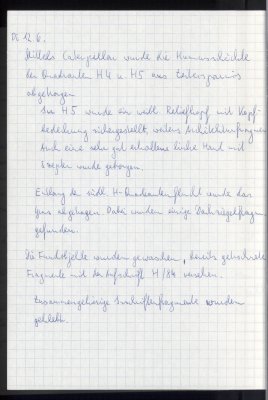 Di 12.6.
Mittels Caterpillar wurde die Humusschichte
der Quadranten H4 u. H5 aus
abgehoben
In H5 wurde ein weibl. Reliefkopf mit Kopf-
bedeckung sichergestellt, weiters Architekturfragmente
Auch eine sehr gut erhaltene linke Hand mit
Szepter wurde geborgen.
Entlang der südl. H-Quadrantenflucht wurde das
abgehoben. Dabei wurden einige Dachziegelfragm.
gefunden.
Die Fundobjekte wurden gewaschen, bereits getrocknete
Fragmente mit der Aufschrift H/84 versehen.
Zusammengehörige Inschriftenfragmente wurden
geklebt.